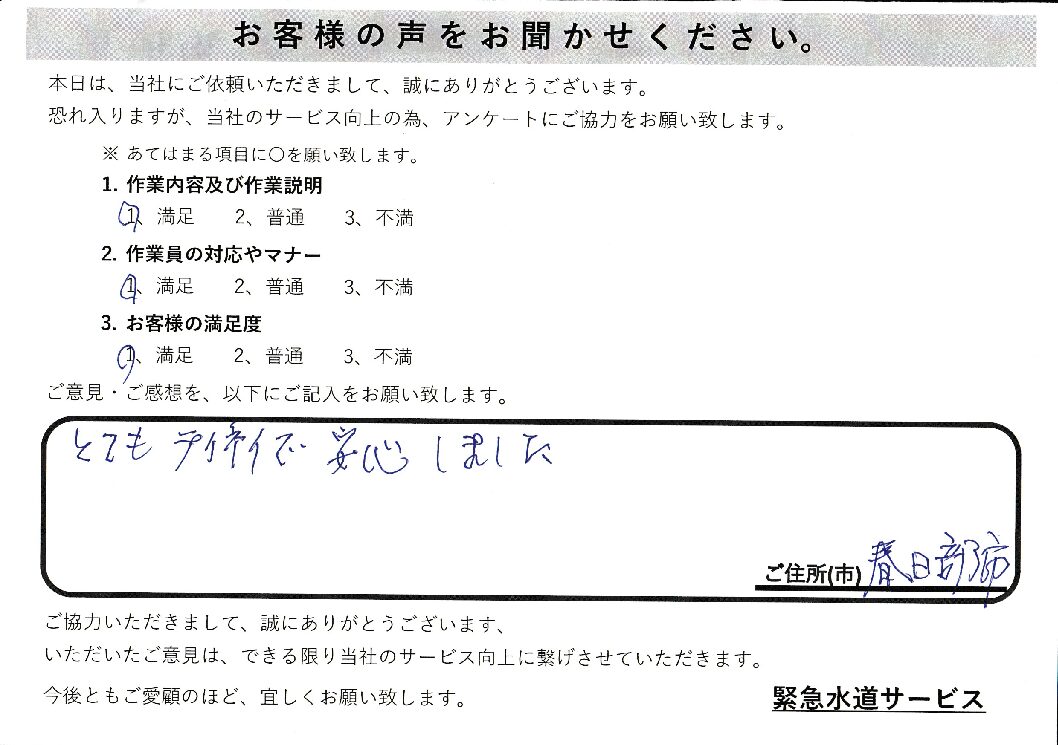 お客様の声をお聞かせください。
本日は、当社にご依頼いただきまして、誠にありがとうございます。
恐れ入りますが、当社のサービス向上の為、アンケートにご協力をお願い致します。
※ あてはまる項目に〇を願い致します。
1. 作業内容及び作業説明
1、満足 2、普通 3、不満
2. 作業員の対応やマナー
1、満足 2、普通 3、不満
3. お客様の満足度
1、満足 2、普通 3、不満
ご意見・ご感想を、以下にご記入をお願い致します。
とても テイネイで 安心 しました
ご住所(市) 春日部市
ご協力いただきまして、誠にありがとうございます、
いただいたご意見は、できる限り当社のサービス向上に繋げさせていただきます。
今後ともご愛顧のほど、宜しくお願い致します。
緊急水道サービス